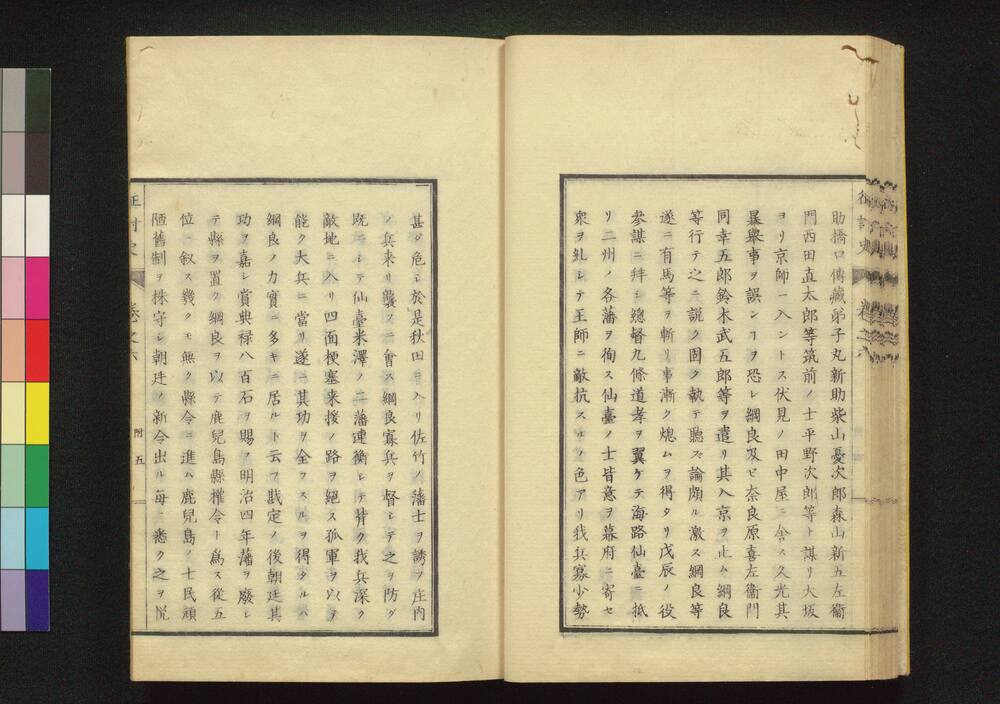 助橋口傳藏弟子丸新助柴山愛次郎森山新五左衞
門西田直太郎等筑前ノ士平野次郎等ト謀リ大坂
ヨリ京師ニ入ントス伏見ノ田中屋ニ舎ス久光其
暴擧事ヲ誤ンヿヲ恐レ綱良及ヒ奈良原喜左衞門
同幸五郎鈴木武五郎等ヲ遣リ其入京ヲ止ム綱良
等行テ之ニ説ク固ク執テ聽ズ論頗ル激ス綱良等
遂ニ有馬等ヲ斬リ事漸ク熄ムヲ得タリ戊辰ノ役
參謀ニ拜シ總督九條道孝ヲ翼ケテ海路仙臺ニ抵
リ二州ノ各藩ヲ徇ス仙臺ノ士皆意ヲ幕府ニ寄セ
衆ヲ糺シテ王師ニ敵抗スルノ色アリ我兵寡少勢
甚タ危シ於是秋田ニ入リ佐竹ノ藩士ヲ誘フ庄内
ノ兵来リ襲フニ會ス綱良寡兵ヲ督シテ之ヲ防グ
既ニシテ仙臺米澤ノ二藩連衡シテ背ク我兵深ク
敵地ニ入リ四面梗塞来援ノ路ヲ絕ス孤軍ヲ以テ
能ク大兵ニ當リ遂ニ其功ヲ全フスルヲ得タルハ
綱良ノ力實ニ多キニ居ルト云フ戡定ノ後朝廷其
功ヲ嘉シ賞典禄八百石ヲ賜フ明治四年藩ヲ廢シ
テ縣ヲ置ク綱良ヲ以テ鹿兒島縣權令ト爲ス從五
位ニ叙ス幾クモ無ク縣令ニ進ム鹿兒島ノ士民頑
陋舊制ヲ株守シ朝廷ノ新令出ル每ニ悉ク之ヲ悦
附 五